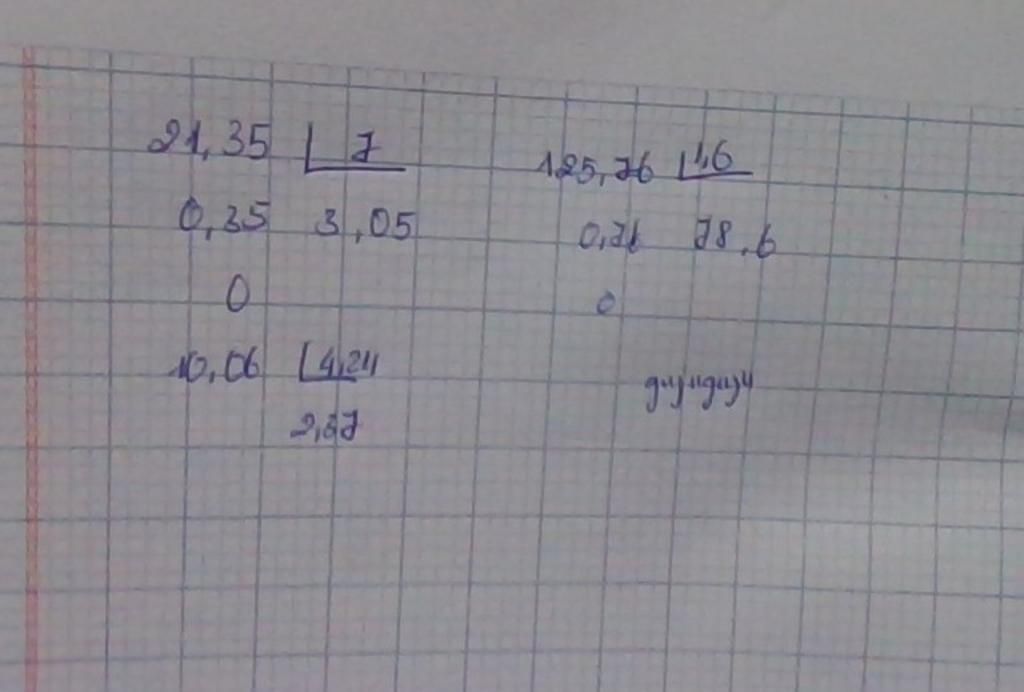 21,35 7
0,35 3,05
0
125,76 1,6
0,76 78,6
0
10,06 4,24
2,37